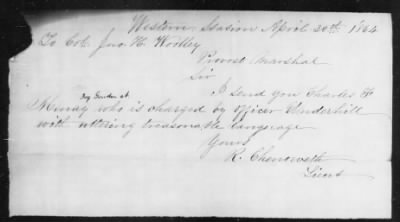 Western Station April 20th, 1864
To Col. Jno. H. Woolley
Provost Marshal
Sir
I send you Charles F
who is charged by officer Underhill
with uttering treasonable language
Yours
R. Chenoweth
Lieut